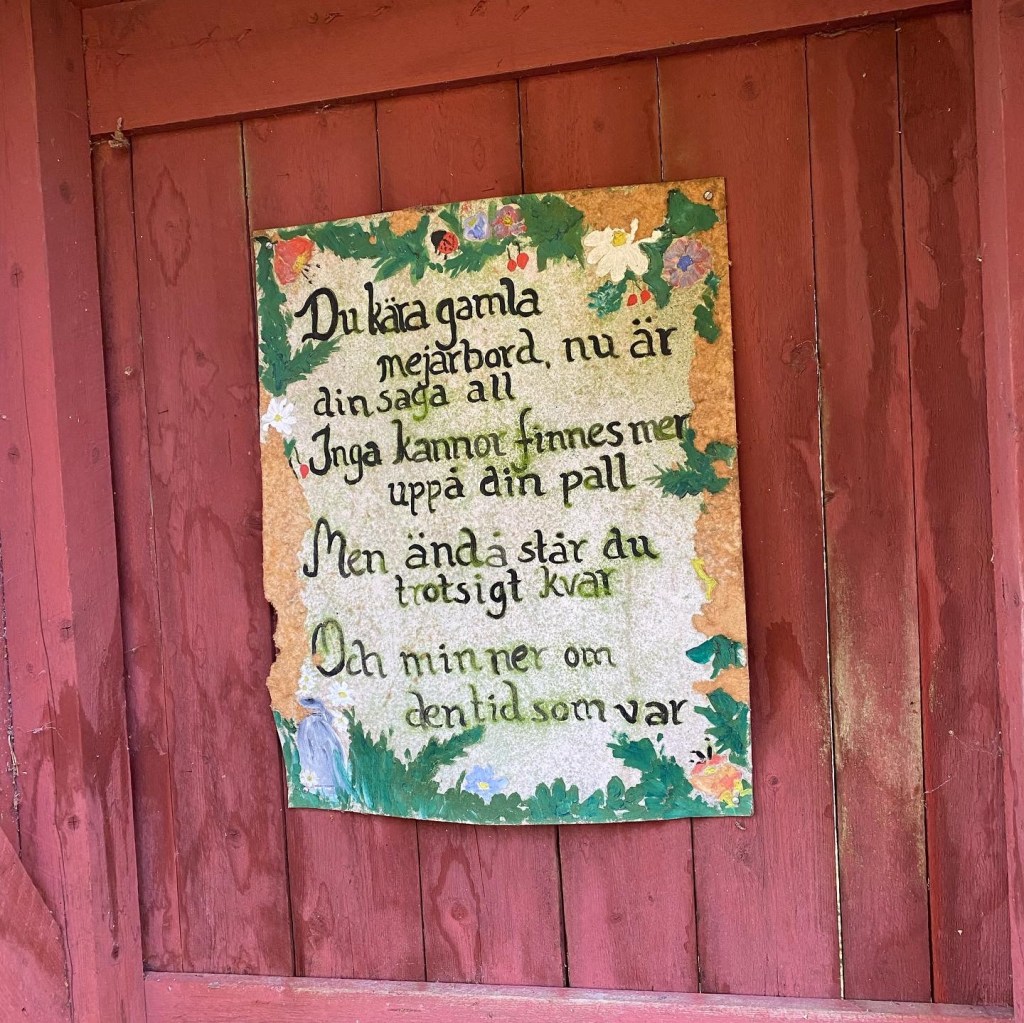 Du kära gamla
mejarbord, nu är
din saga all
Inga kannor finnes mer
uppå din pall
Men ändå står du
trotsigt kvar
Och minner om
den tid som var